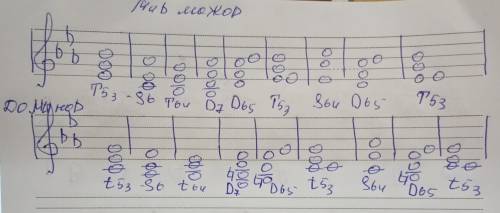 Миb мажор
Т53 - S6 Т64 D7 D65 Т53 S64 D65 Т53
До минор
t53 - S6 t64 D7 D65 t53 S64 D65 t53